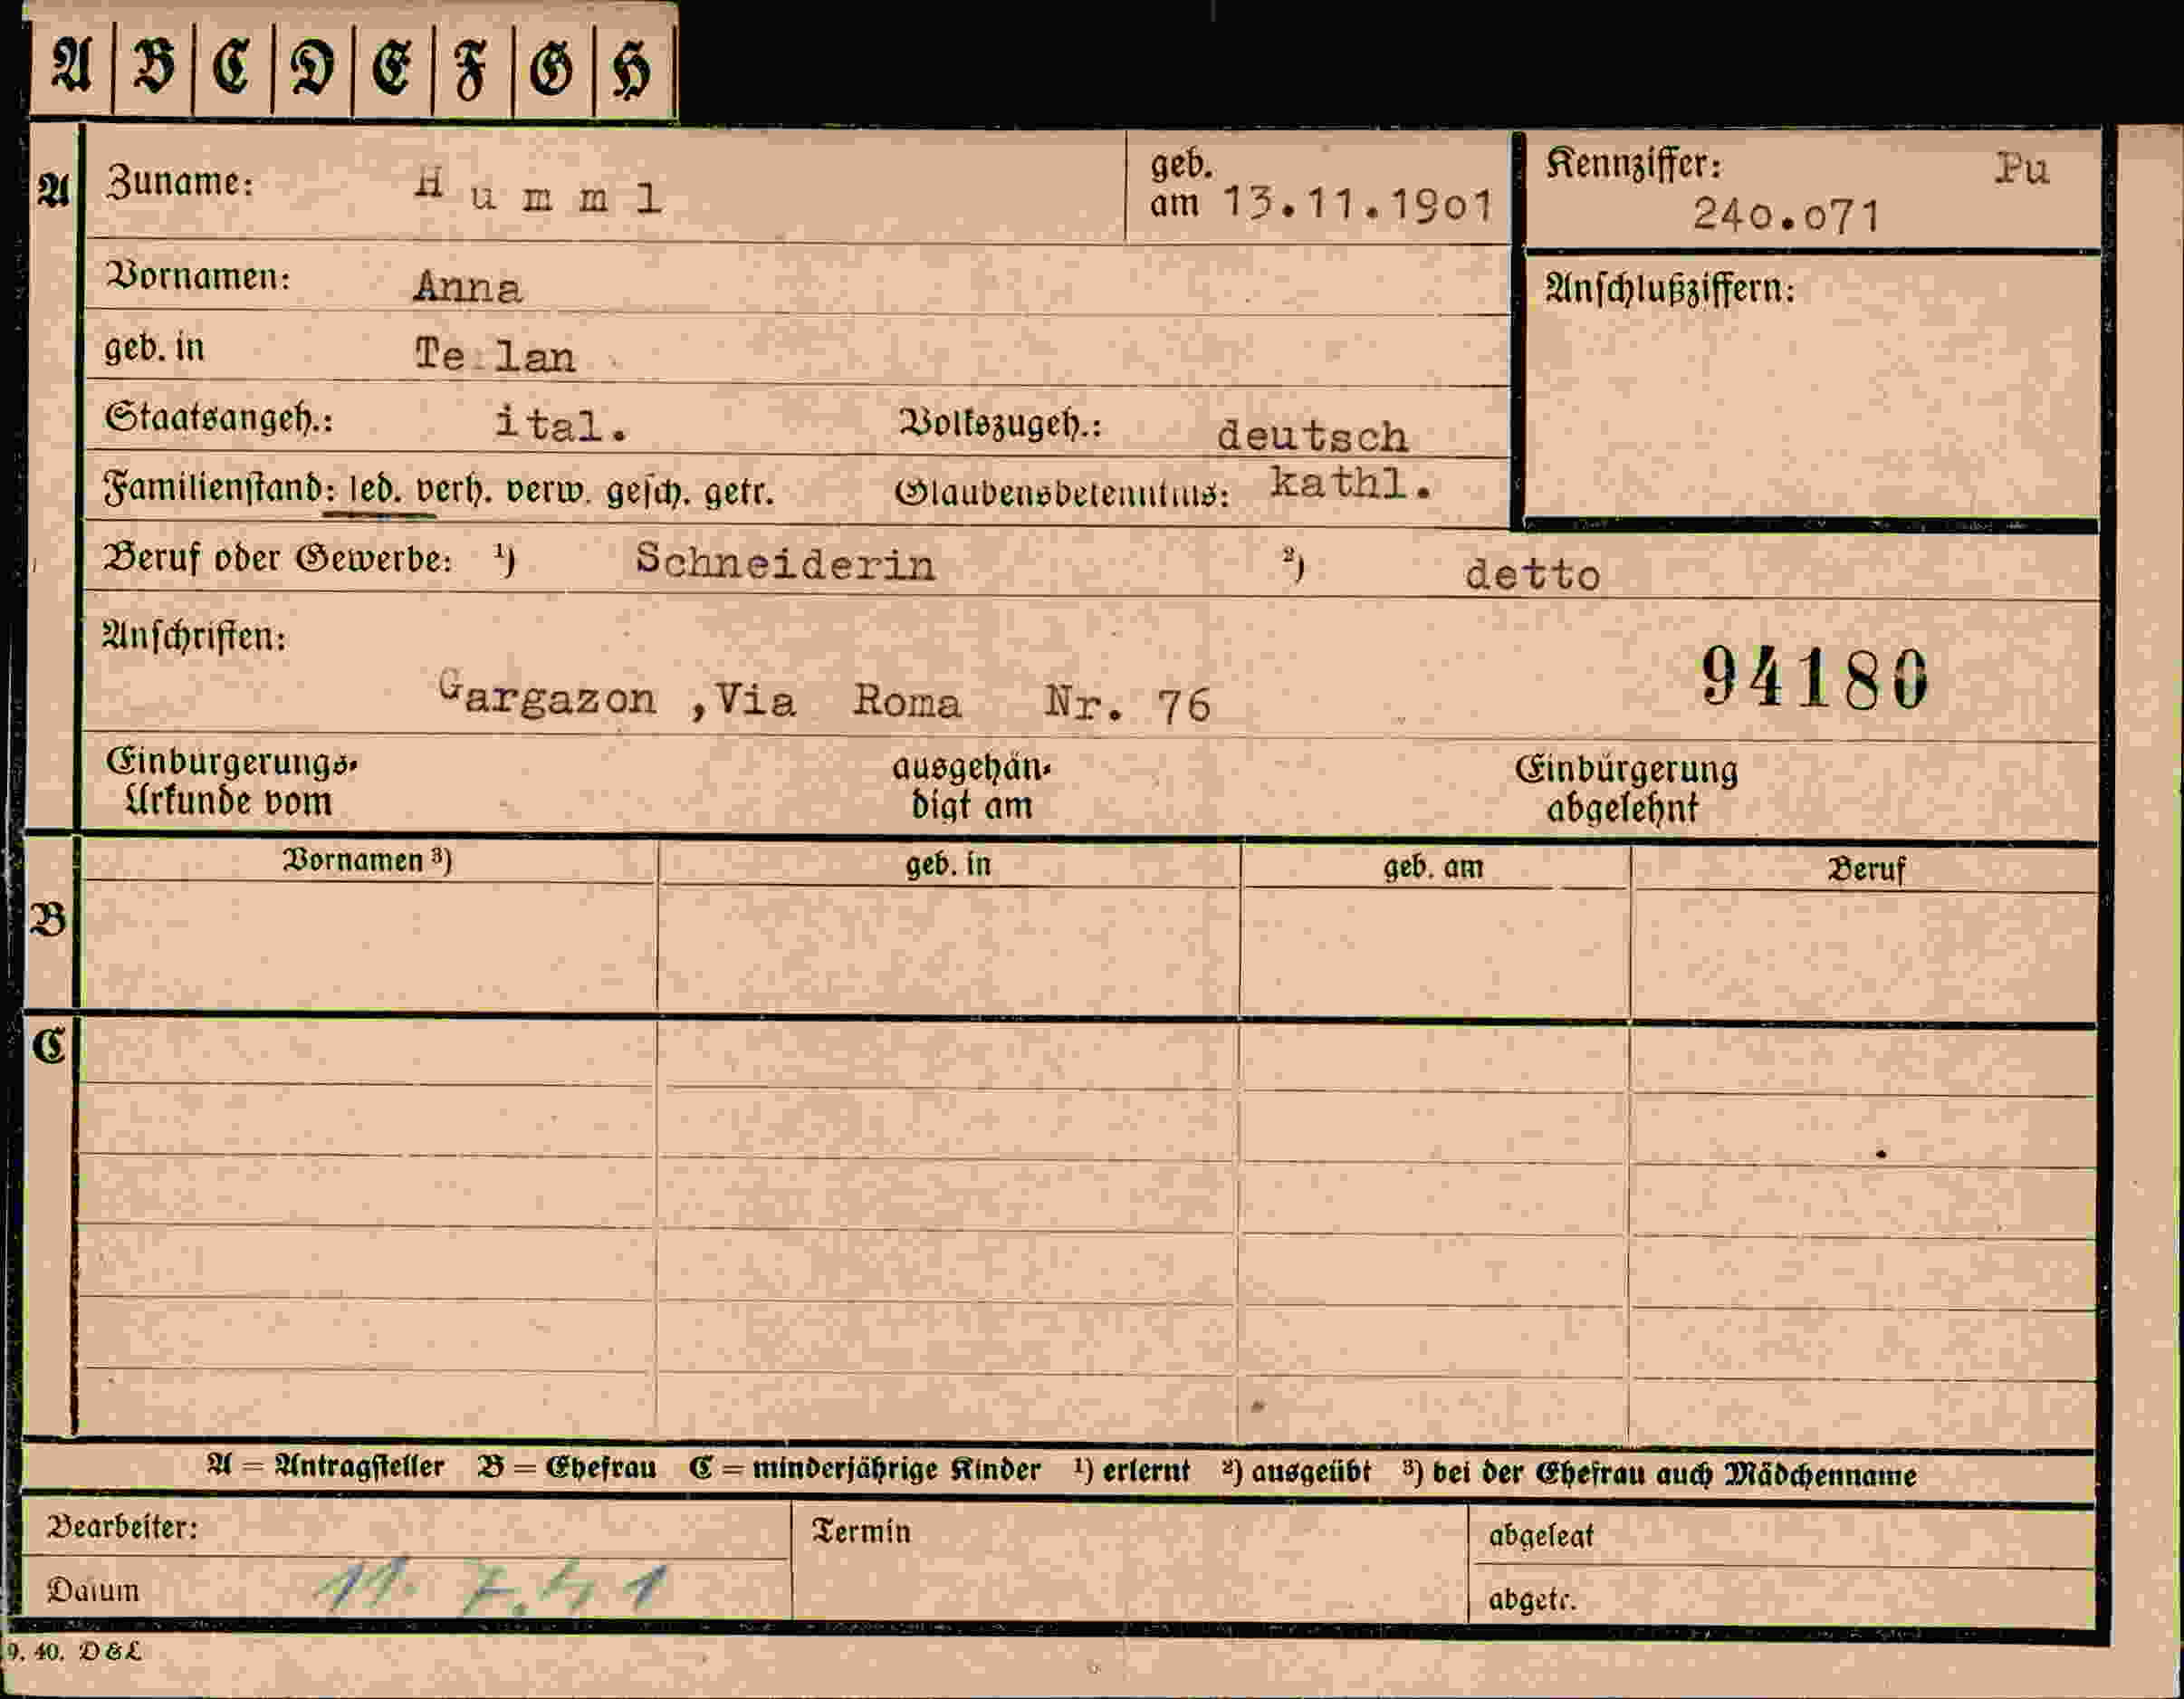 A B C D E F G H
A Zuname: Humml geb. am 13.11.1901 Kennziffer: Pu 240.071
Vornamen: Anna Anschlußziffern:
geb. in Te lan
Staatsangeh.: ital. Volkszugeh.: deutsch
Familienstand: led. verh. verw. gesch. getr. Glaubensbekenntnis: kathl.
Beruf oder Gewerbe: ¹) Schneiderin ²) detto
Anschriften:
94180
Gargazon ,Via Roma Nr. 76
Einbürgerungs- ausgehän- Einbürgerung
Urkunde vom digt am abgelehnt
Vornamen ³) geb. in geb. am Beruf
B
C
A = Antragsteller B = Ehefrau C = minderjährige Kinder ¹) erlernt ²) ausgeübt ³) bei der Ehefrau auch Mädchenname
Bearbeiter: Termin abgelegt
Datum 11. 7.41 abgetr.
9. 40. D&L